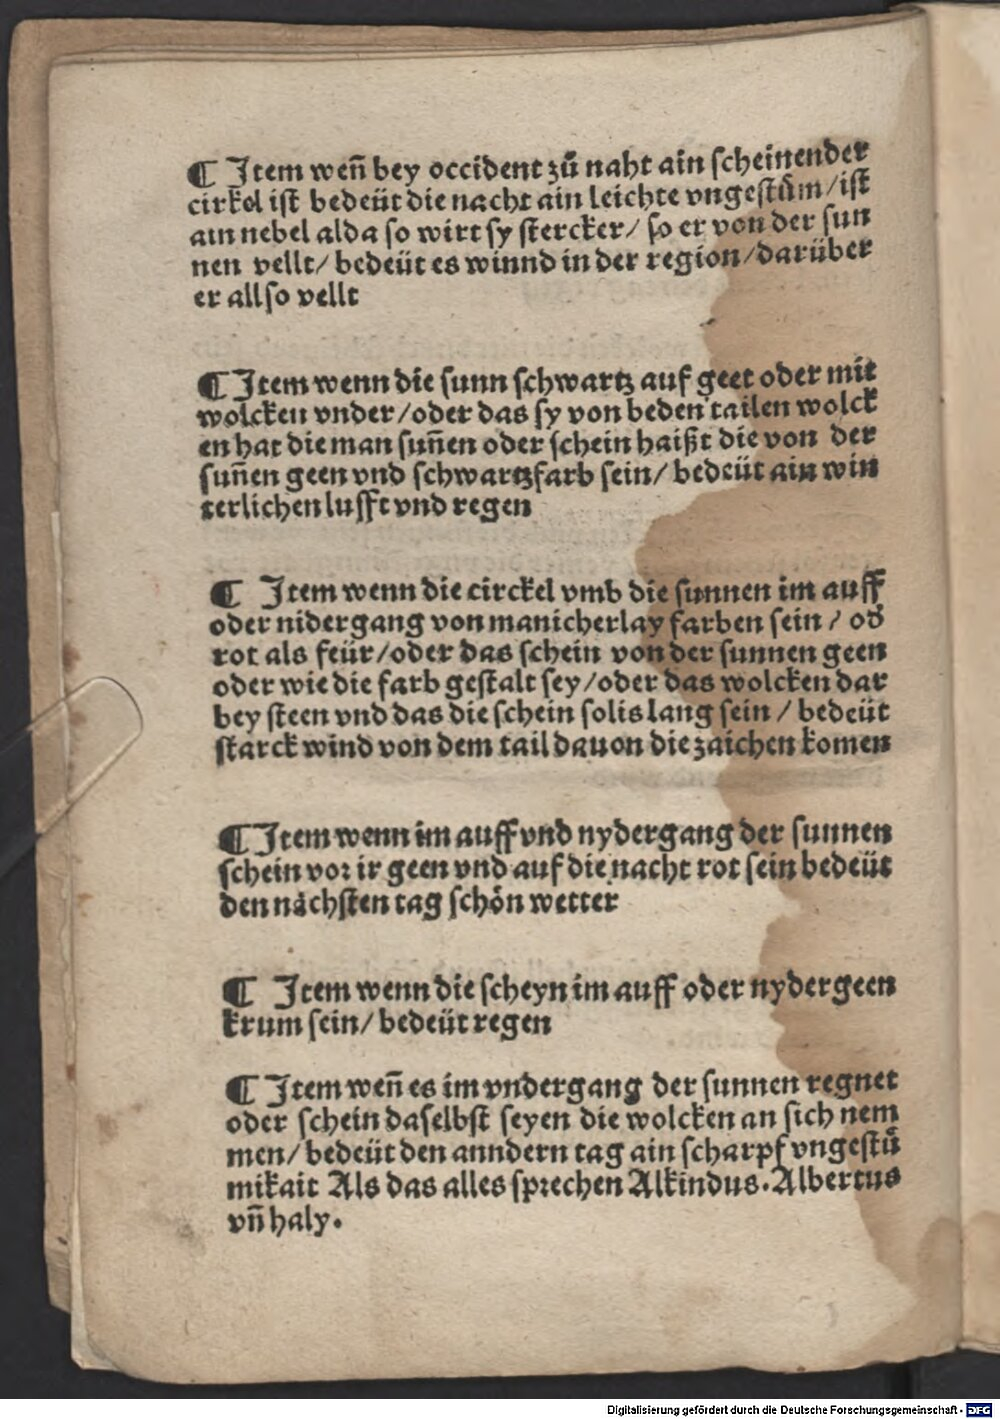 ¶ Item weñ bey occident zů naht ain scheinender
cirkel ist bedeüt die nacht ain leichte vngestům/ist
ain nebel alda so wirt sy stercker/ so er von der sun
nen vellt/ bedeüt es winnd in der region/darüber
er allso vellt
¶ Item wenn die sunn schwartz auf geet oder mit
wolcken vnder/oder das sy von beden tailen wolck
en hat die man suñen oder schein haißt die von der
suñen geen vnd schwartzfarb sein/ bedeüt ain win
terlichen lufft vnd regen
¶ Item wenn die circkel vmb die sunnen im auff
oder nidergang von manicherlay farben sein/ od̕
rot als feür/oder das schein von der sunnen geen
oder wie die farb gestalt sey/oder das wolcken dar
bey steen vnd das die schein solis lang sein/ bedeüt
starck wind von dem tail dauon die zaichen komen
¶ Item wenn im auff vnd nydergang der sunnen
schein vor ir geen vnd auf die nacht rot sein bedeüt
den nächsten tag schön wetter
¶ Item wenn die scheyn im auff oder nydergeen
krum sein/ bedeüt regen
¶ Item weñ es im vndergang der sunnen regnet
oder schein daselbst seyen die wolcken an sich nem
men/ bedeüt den anndern tag ain scharpf vngestů
mikait Als das alles sprechen Alkindus. Albertus
vñ haly.
Digitalisierung gefördert durch die Deutsche Forschungsgemeinschaft - DFG